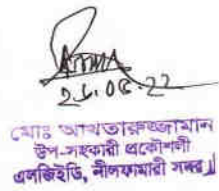 মোঃ আখতারুজ্জামান
উপ-সহকারী প্রকৌশলী
এলজিইডি, নীলফামারী সদর।